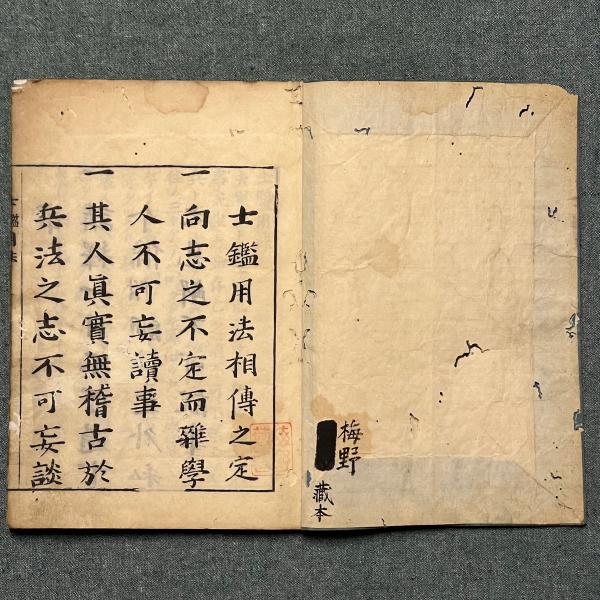 梅野
藏本
士鑑用法相傳之定
一向志之不定而雜學
人不可妄讀事
一其人眞實無稽古於
兵法之志不可妄談